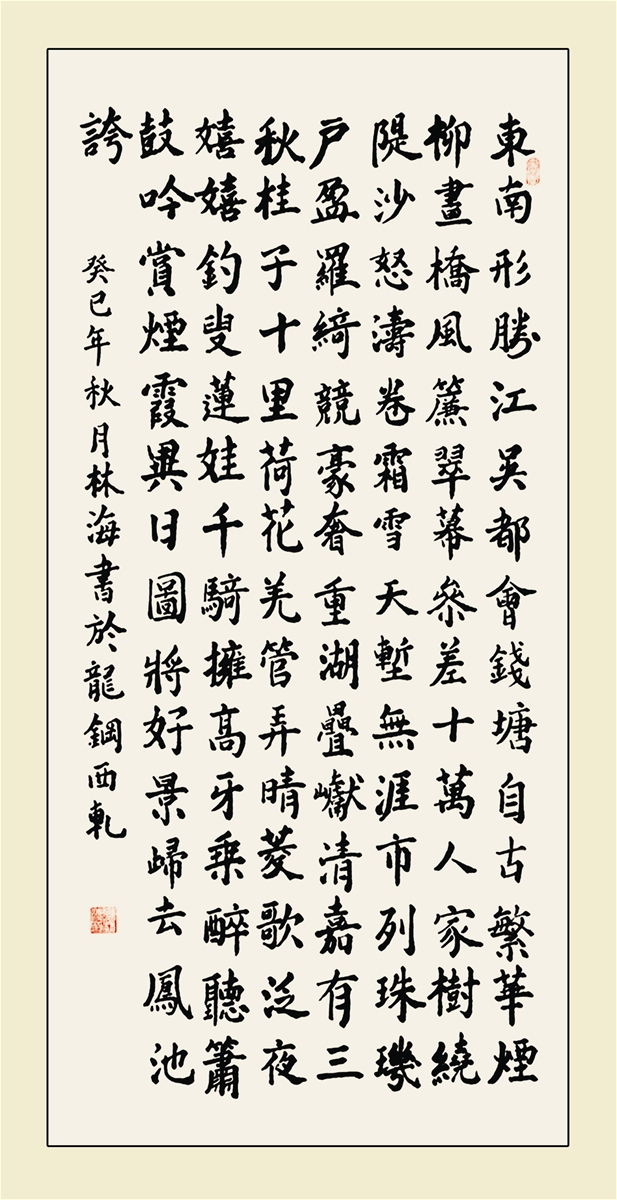 東南形勝江吳都會錢塘自古繁華煙
柳畫橋風簾翠幕參差十萬人家樹繞
隄沙怒濤卷霜雪天塹無涯市列珠璣
戶盈羅綺競豪奢重湖疊巘清嘉有三
秋桂子十里荷花羌管弄晴菱歌泛夜
嬉嬉釣叟蓮娃千騎擁高牙乘醉聽簫
鼓吟賞煙霞異日圖將好景歸去鳳池
誇
癸巳年秋月林海書於龍鋼西軒